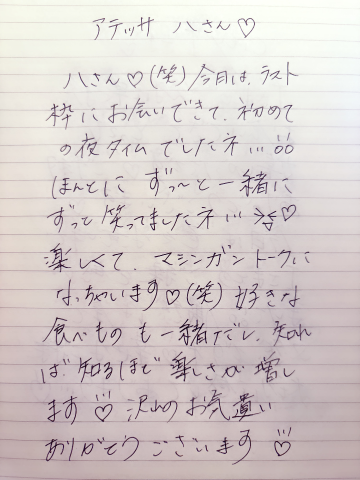 アテッサ 八さん♡
八さん♡(笑)今日は、ラスト
枠にお会いできて、初めて
の夜タイムでしたネ!!!
ほんとに ずっ〜と一緒に
ずっと笑ってましたネ!!! ♡
楽しくて、マシンガントークに
なっちゃいます♡(笑) 好きな
食べものも一緒だし、知れ
ば知るほど楽しさが増し
ます 沢山のお気遣い
ありがとうございます